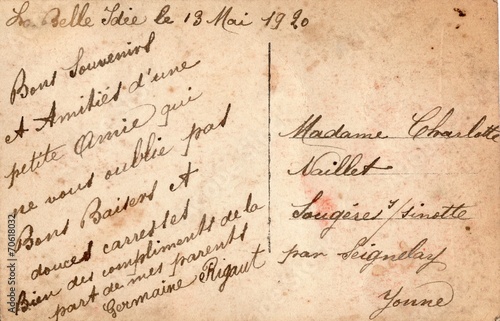 La Belle Idée le 13 Mai 1920
Bons Souvenirs
et Amitiés d'une
petite Amie qui
ne vous oublie pas
Bons Baisers et
douces carresses
Bien des compliments de la
part de mes parents
Germaine Rigaut
Madame Charlotte
Naillet
Sougéres s/sinotte
par Seignelay
Yonne
Adobe Stock | 70618032